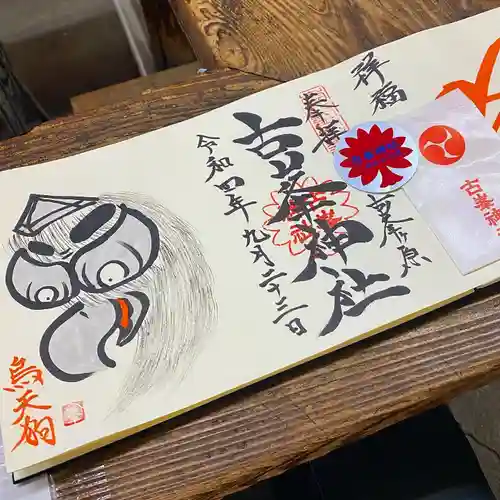 祥福
奉拝
古峯神社
古峯ヶ原
令和四年九月二十二日
烏天狗
古峯神社